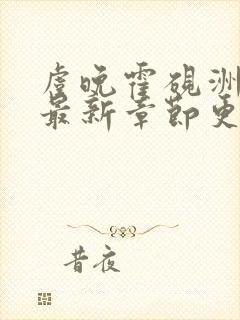 虐晚霍砚洲
最新章节更
昔夜